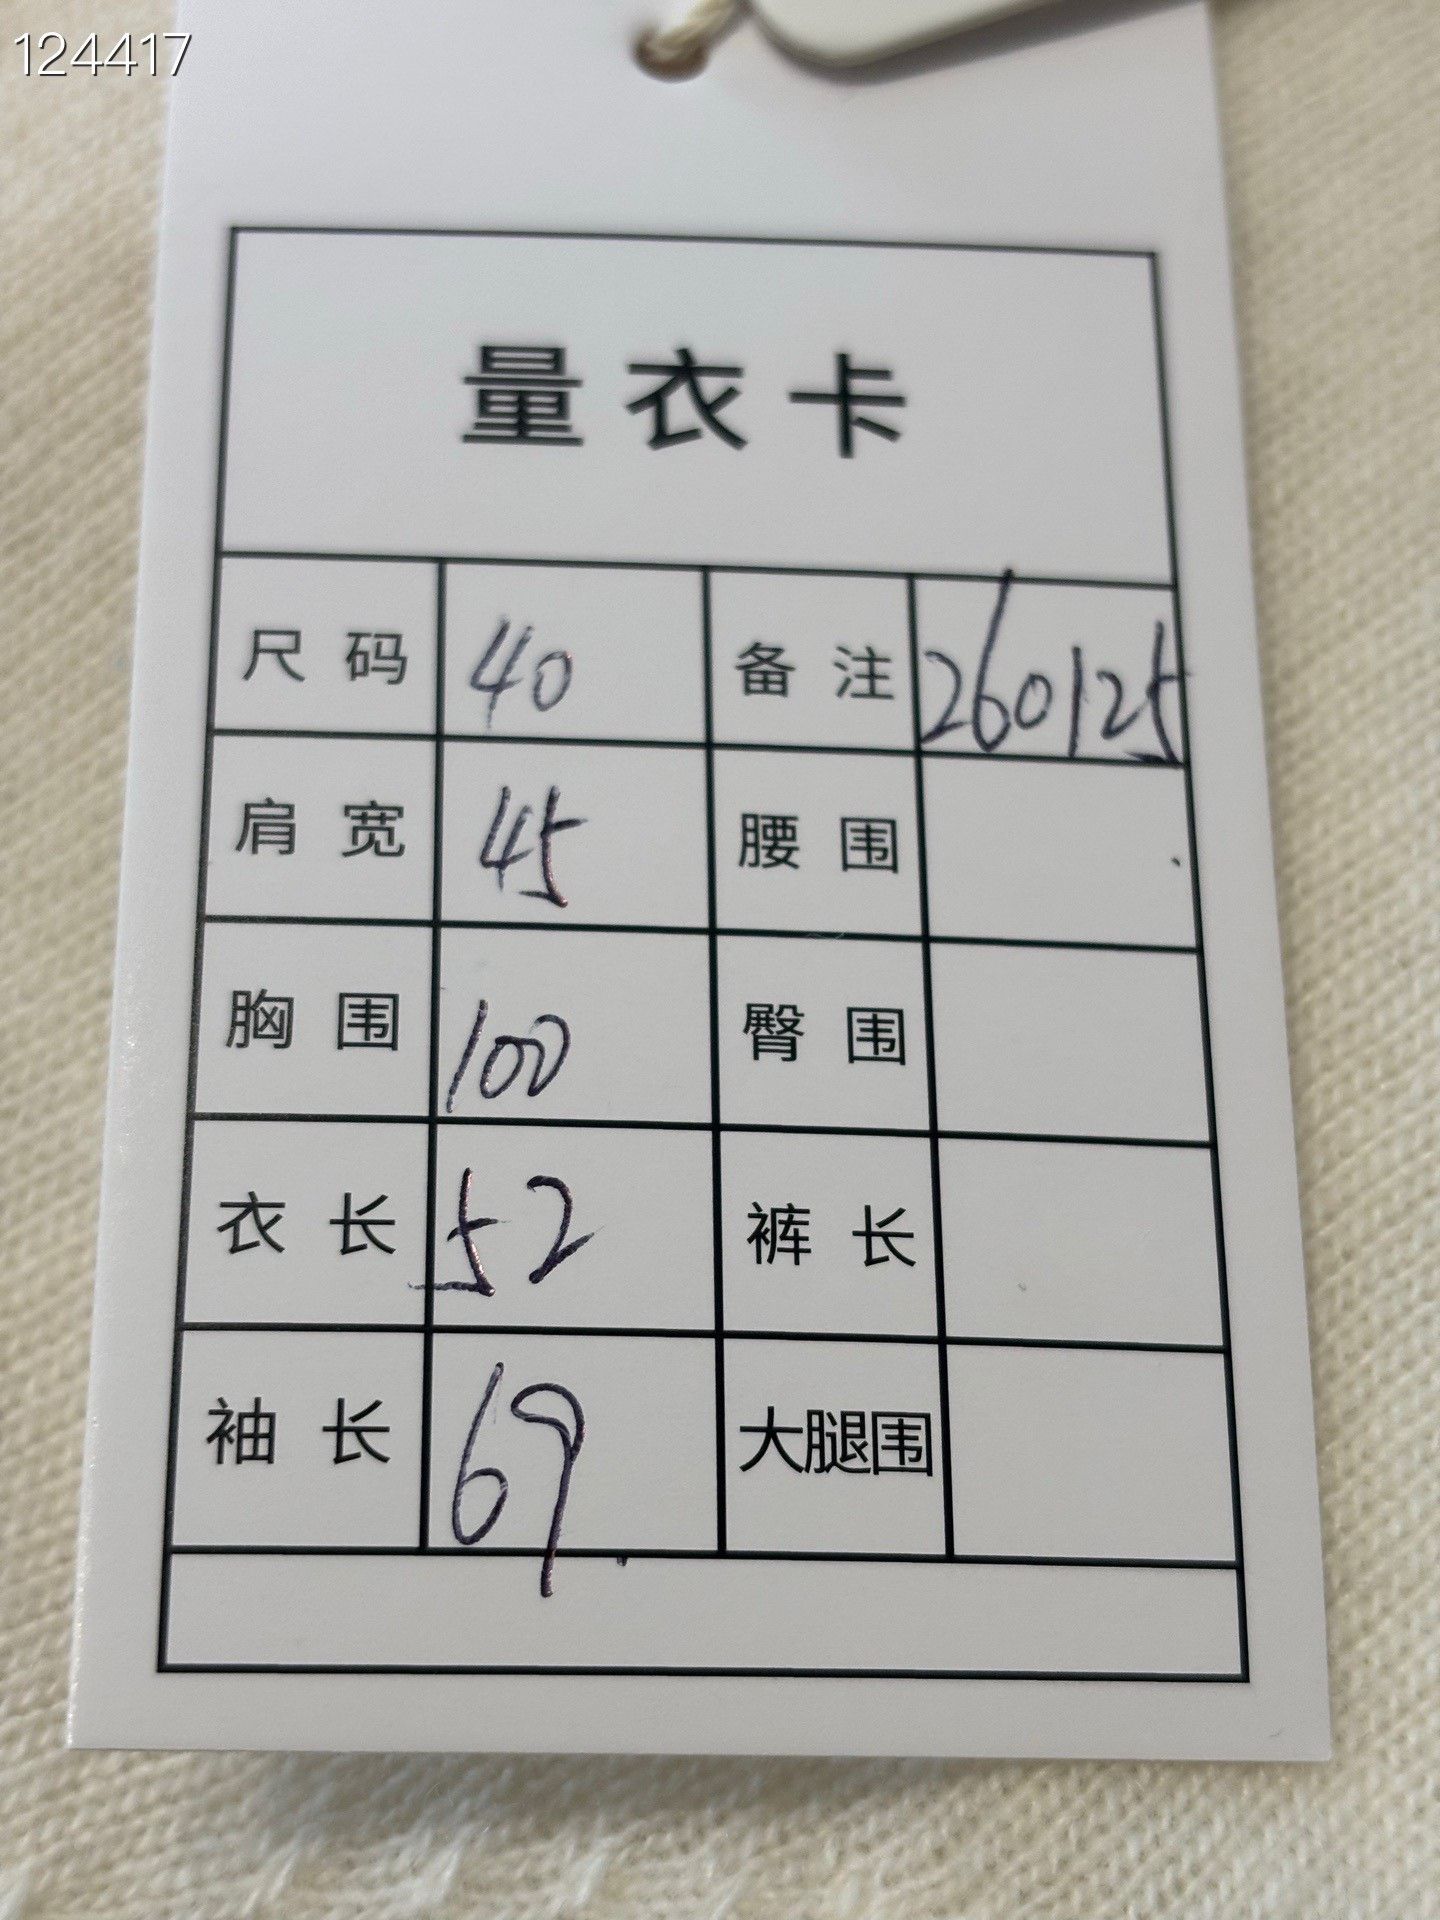 124417
量衣卡
尺码 40 备注 260125
肩宽 45 腰围
胸围 100 臀围
衣长 52 裤长
袖长 69 大腿围